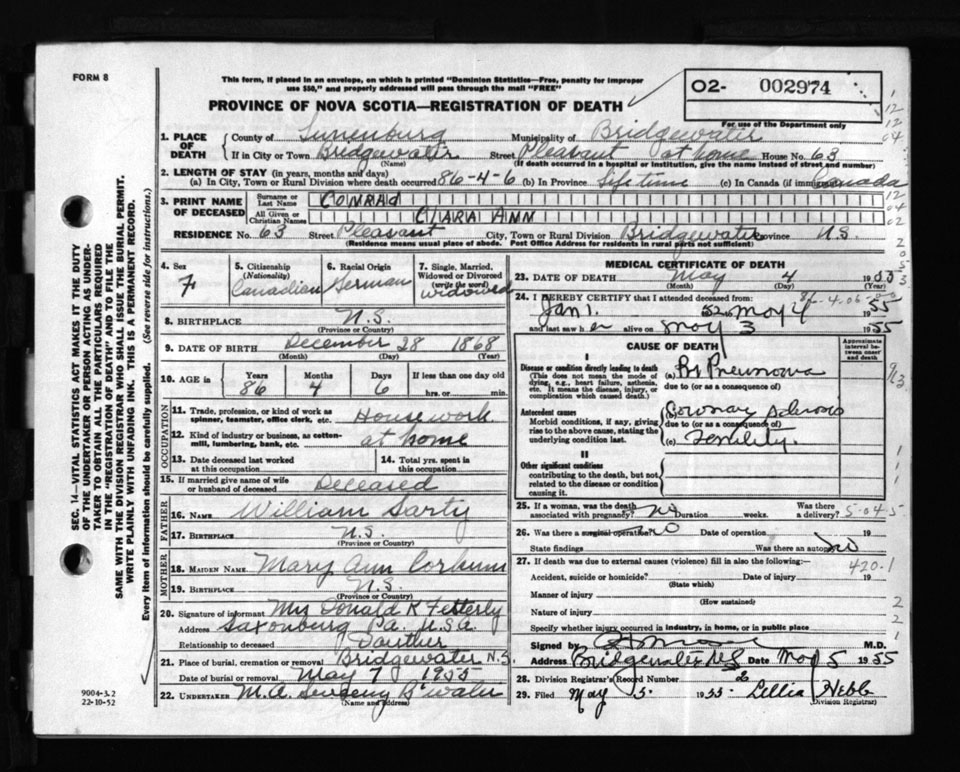 FORM 8
This form, if placed in an envelope, on which is printed "Dominion Statistics—Free, penalty for improper
use $50," and properly addressed will pass through the mail "FREE"
PROVINCE OF NOVA SCOTIA—REGISTRATION OF DEATH
O2- 002974
For use of the Department only
1. PLACE OF DEATH
County of Lunenburg Municipality of Bridgewater
If in City or Town Bridgewater Street Pleasant at home House No. 63
(Name) (If death occurred in a hospital or institution, give the name instead of street and number)
2. LENGTH OF STAY (in years, months and days)
(a) In City, Town or Rural Division where death occurred 86-4-6 (b) In Province Life time (c) In Canada (if immigrant) Canada
3. PRINT NAME OF DECEASED
Surname or Last Name CONRAD
All Given or Christian Names CLARA ANN
RESIDENCE No. 63 Street Pleasant City, Town or Rural Division Bridgewater Province N.S.
(Residence means usual place of abode. Post Office Address for residents in rural parts not sufficient)
4. Sex F
5. Citizenship (Nationality) Canadian
6. Racial Origin German
7. Single, Married, Widowed or Divorced (write the word) Widowed
8. BIRTHPLACE N.S.
(Province or Country)
9. DATE OF BIRTH December 28 1868
(Month) (Day) (Year)
10. AGE in Years Months Days If less than one day old
86 4 6 hrs. or min.
OCCUPATION
11. Trade, profession, or kind of work as spinner, teamster, office clerk, etc. Housework.
12. Kind of industry or business, as cotten-mill, lumbering, bank, etc. at home
13. Date deceased last worked at this occupation
14. Total yrs. spent in this occupation
15. If married give name of wife or husband of deceased Deceased
FATHER
16. NAME William Sarty
17. BIRTHPLACE N.S.
(Province or Country)
MOTHER
18. MAIDEN NAME Mary Ann
19. BIRTHPLACE N.S.
(Province or Country)
20. Signature of informant Mrs Donald K Fetterly
Address Saxonburg Pa. U.S.A.
Relationship to deceased Daughter
21. Place of burial, cremation or removal Bridgewater N.S.
Date of burial or removal May 7 1955
22. UNDERTAKER M.A. B'water
(Name and address)
MEDICAL CERTIFICATE OF DEATH
23. DATE OF DEATH May 4 1955
(Month) (Day) (Year)
24. I HEREBY CERTIFY that I attended deceased from:
86-4-06-00
Jan 1. 52 to May 4 1955
and last saw her alive on May 3 1955
CAUSE OF DEATH
Approximate interval between onset and death
I
Disease or condition directly leading to death (a) Br Pneumonia
(This does not mean the mode of dying, e.g., heart failure, asthenia, etc. It means the disease, injury, or complication which caused death.)
due to (or as a consequence of)
Antecedent causes Coronary Sclerosis
Morbid conditions, if any, giving rise to the above cause, stating the underlying condition last.
due to (or as a consequence of)
(c)
II
Other significant conditions
contributing to the death, but not related to the disease or condition causing it.
25. If a woman, was the death associated with pregnancy? No Duration weeks. Was there a delivery?
5-04-5
26. Was there a surgical operation? No Date of operation 19
State findings Was there an autopsy No
27. If death was due to external causes (violence) fill in also the following:—
420.1
Accident, suicide or homicide? Date of injury 19
(State which)
Manner of injury
(How sustained)
Nature of injury
Specify whether injury occurred in industry, in home, or in public place
Signed by M.D.
Address Bridgewater N.S. Date May 5 1955
28. Division Registrar's Record Number 2
29. Filed May 5. 1955. Lellia Hebb
(Division Registrar)
SEC. 14—VITAL STATISTICS ACT MAKES IT THE DUTY
OF THE UNDERTAKER OR PERSON ACTING AS UNDER-
TAKER TO OBTAIN ALL THE PARTICULARS REQUIRED
IN THE "REGISTRATION OF DEATH" AND TO FILE THE
SAME WITH THE DIVISION REGISTRAR WHO SHALL ISSUE THE BURIAL PERMIT.
WRITE PLAINLY WITH UNFADING INK. THIS IS A PERMANENT RECORD.
Every item of information should be carefully supplied. (See reverse side for instructions.)
9004-3.2
22-10-52